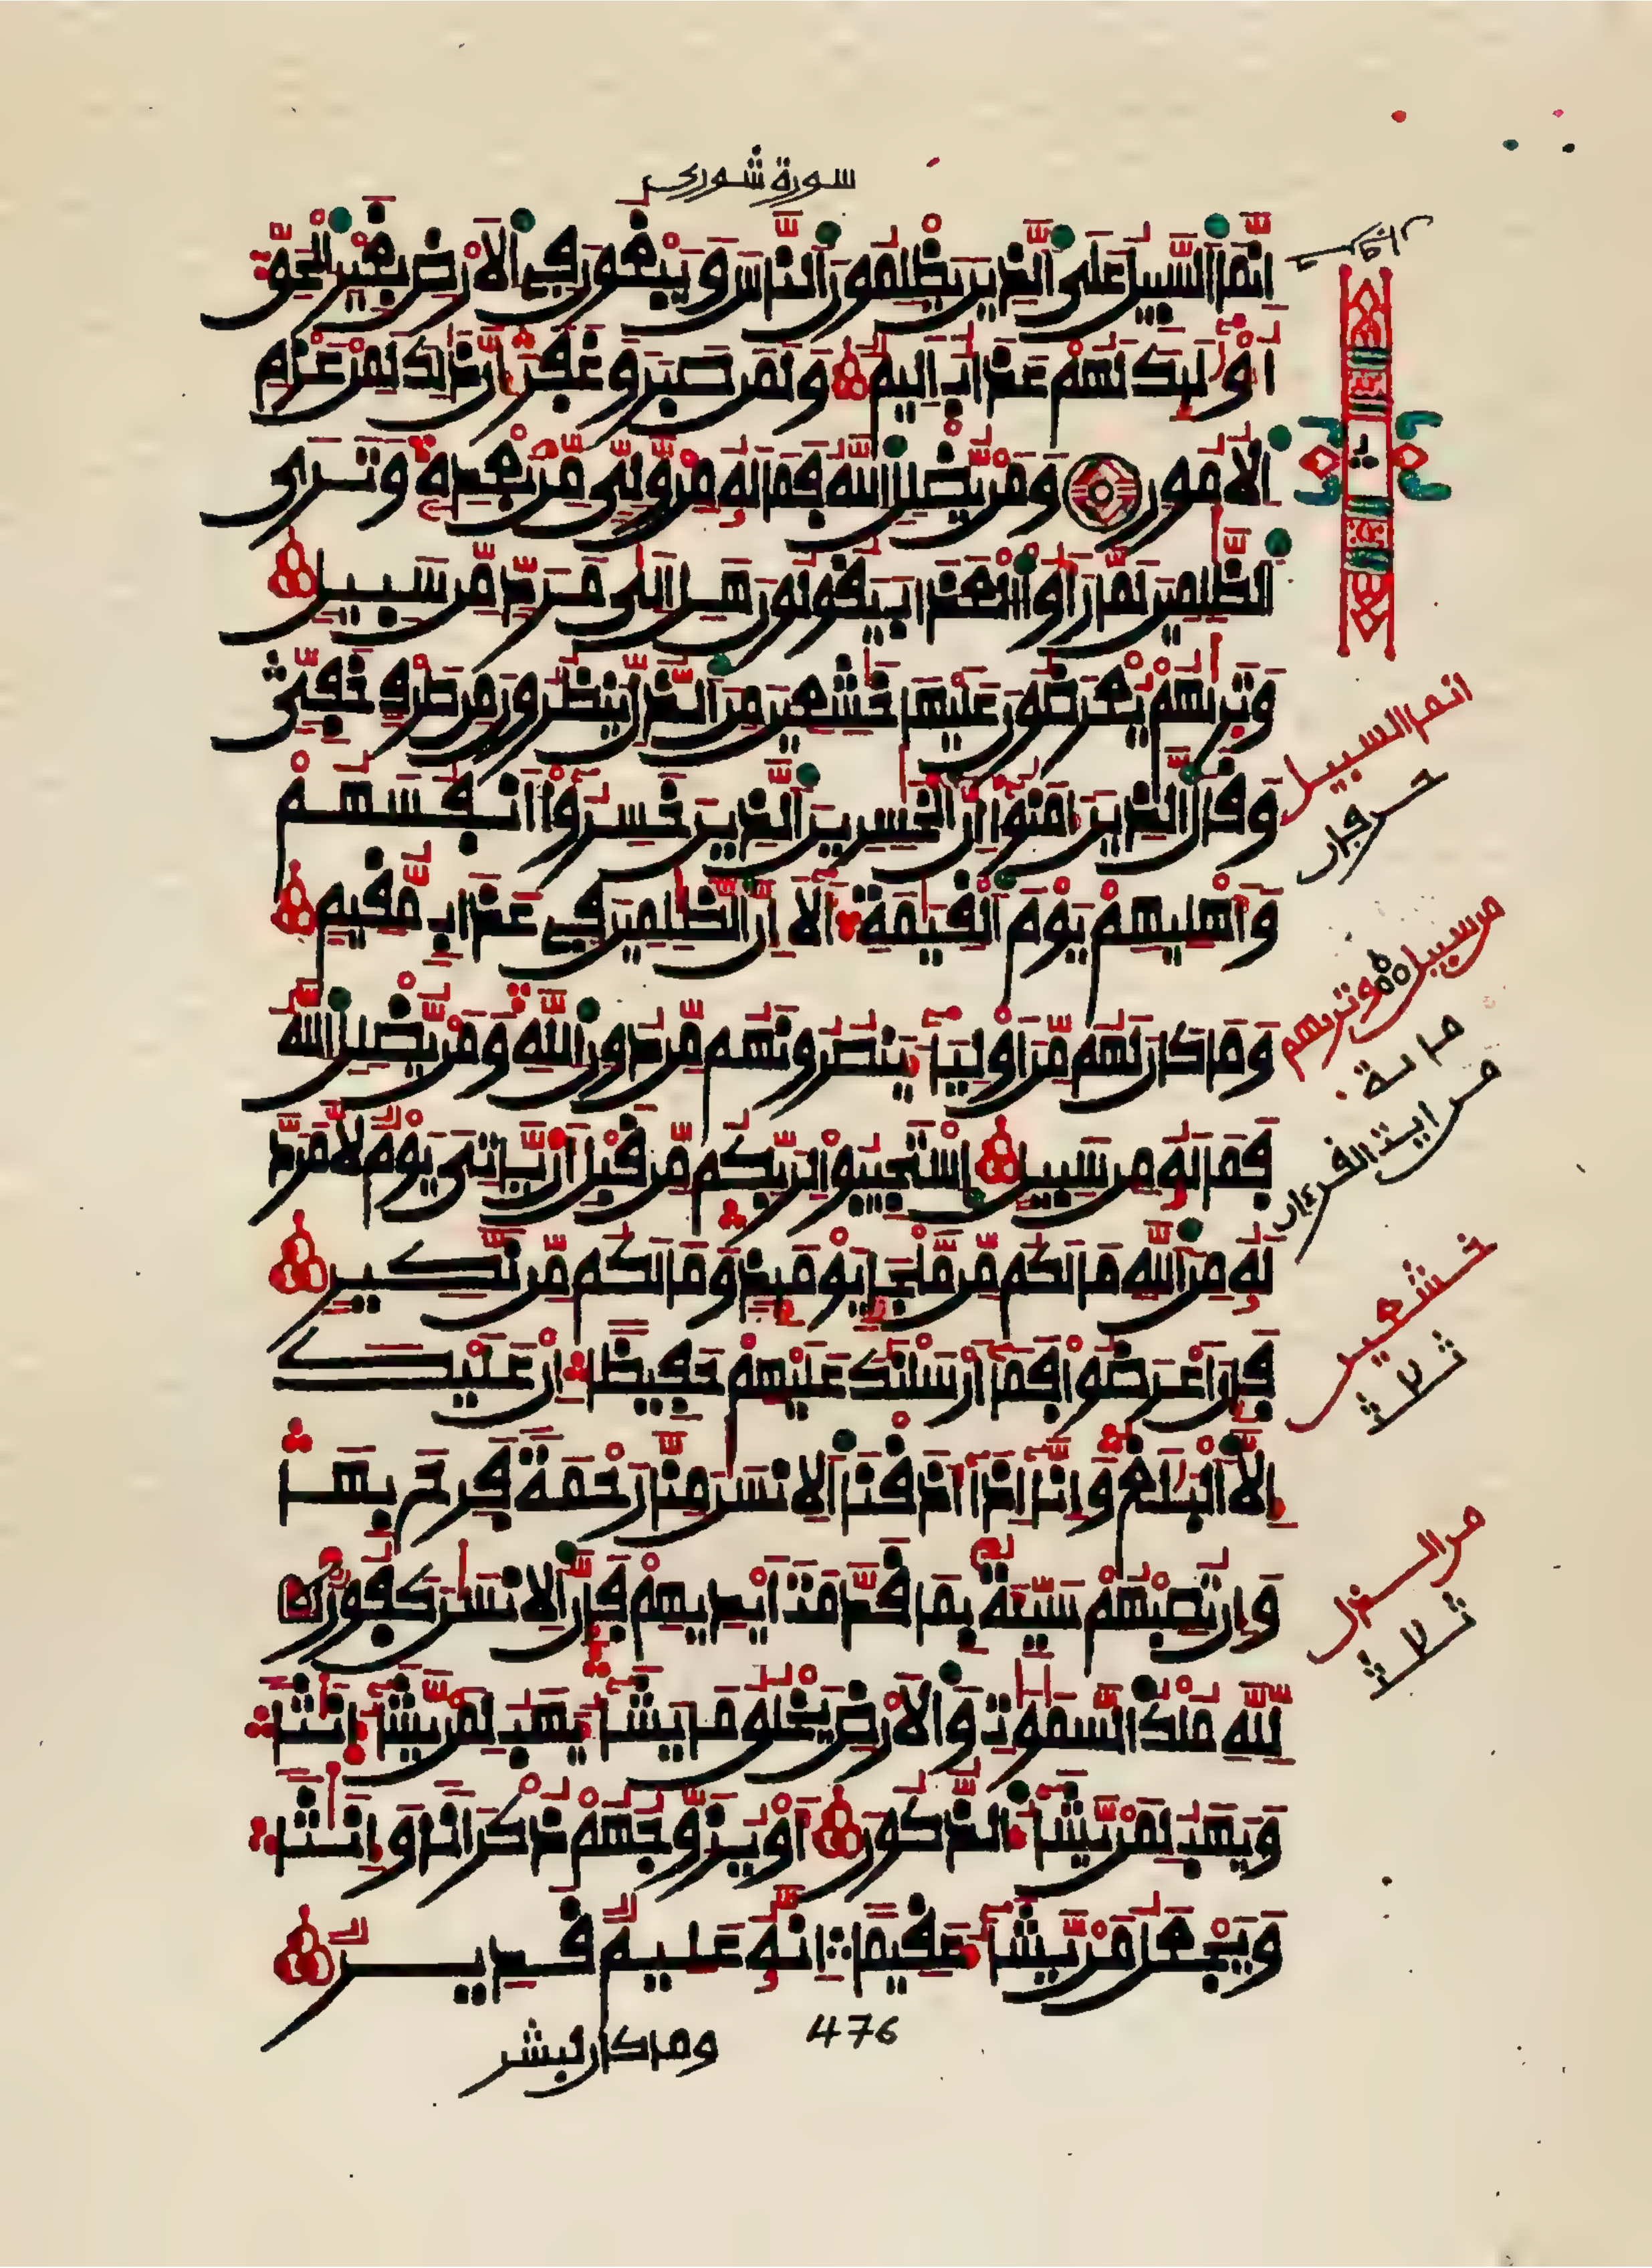 سورة شورى
إِنَّمَا السَّبِيلُ عَلَى الَّذِينَ يَظْلِمُونَ النَّاسَ وَيَبْغُونَ فِي الْأَرْضِ بِغَيْرِ الْحَقِّ
أُوْلَٰئِكَ لَهُمْ عَذَابٌ أَلِيمٌ وَلَمَن صَبَرَ وَغَفَرَ إِنَّ ذَٰلِكَ لَمِنْ عَزْمِ
الْأُمُورِ وَمَن يُضْلِلِ اللَّهُ فَمَا لَهُ مِن وَّلِيٍّ مِّن بَعْدِهِ وَتَرَى
الظَّٰلِمِينَ لَمَّا رَأَوُا الْعَذَابَ يَقُولُونَ هَلْ إِلَىٰ مَرَدٍّ مِّن سَبِيلٍ
وَتَرَىٰهُمْ يُعْرَضُونَ عَلَيْهَا خَٰشِعِينَ مِنَ الذُّلِّ يَنظُرُونَ مِن طَرْفٍ خَفِيٍّ
وَقَالَ الَّذِينَ ءَامَنُوا إِنَّ الْخَٰسِرِينَ الَّذِينَ خَسِرُوا أَنفُسَهُمْ
وَأَهْلِيهِمْ يَوْمَ الْقِيَٰمَةِ أَلَا إِنَّ الظَّٰلِمِينَ فِي عَذَابٍ مُّقِيمٍ
وَمَا كَانَ لَهُم مِّنْ أَوْلِيَاءَ يَنصُرُونَهُم مِّن دُونِ اللَّهِ وَمَن يُضْلِلِ اللَّهُ
فَمَا لَهُ مِن سَبِيلٍ اسْتَجِيبُوا لِرَبِّكُم مِّن قَبْلِ أَن يَأْتِيَ يَوْمٌ لَّا مَرَدَّ
لَهُ مِنَ اللَّهِ مَا لَكُم مِّن مَّلْجَإٍ يَوْمَئِذٍ وَمَا لَكُم مِّن نَّكِيرٍ
فَإِنْ أَعْرَضُوا فَمَا أَرْسَلْنَٰكَ عَلَيْهِمْ حَفِيظًا إِنْ عَلَيْكَ
إِلَّا الْبَلَٰغُ وَإِنَّا إِذَا أَذَقْنَا الْإِنسَٰنَ مِنَّا رَحْمَةً فَرِحَ بِهَا
وَإِن تُصِبْهُمْ سَيِّئَةٌ بِمَا قَدَّمَتْ أَيْدِيهِمْ فَإِنَّ الْإِنسَٰنَ كَفُورٌ
لِّلَّهِ مُلْكُ السَّمَٰوَٰتِ وَالْأَرْضِ يَخْلُقُ مَا يَشَاءُ يَهَبُ لِمَن يَشَاءُ إِنَٰثًا
وَيَهَبُ لِمَن يَشَاءُ الذُّكُورَ أَوْ يُزَوِّجُهُمْ ذُكْرَانًا وَإِنَٰثًا
وَيَجْعَلُ مَن يَشَاءُ عَقِيمًا إِنَّهُ عَلِيمٌ قَدِيرٌ
476
وما كان لبشر
ثمن
انما السبيل
حرفان
من سبيل وتريهم
من اية القرءان
خشعين
ثلث
من الذل
ثلث